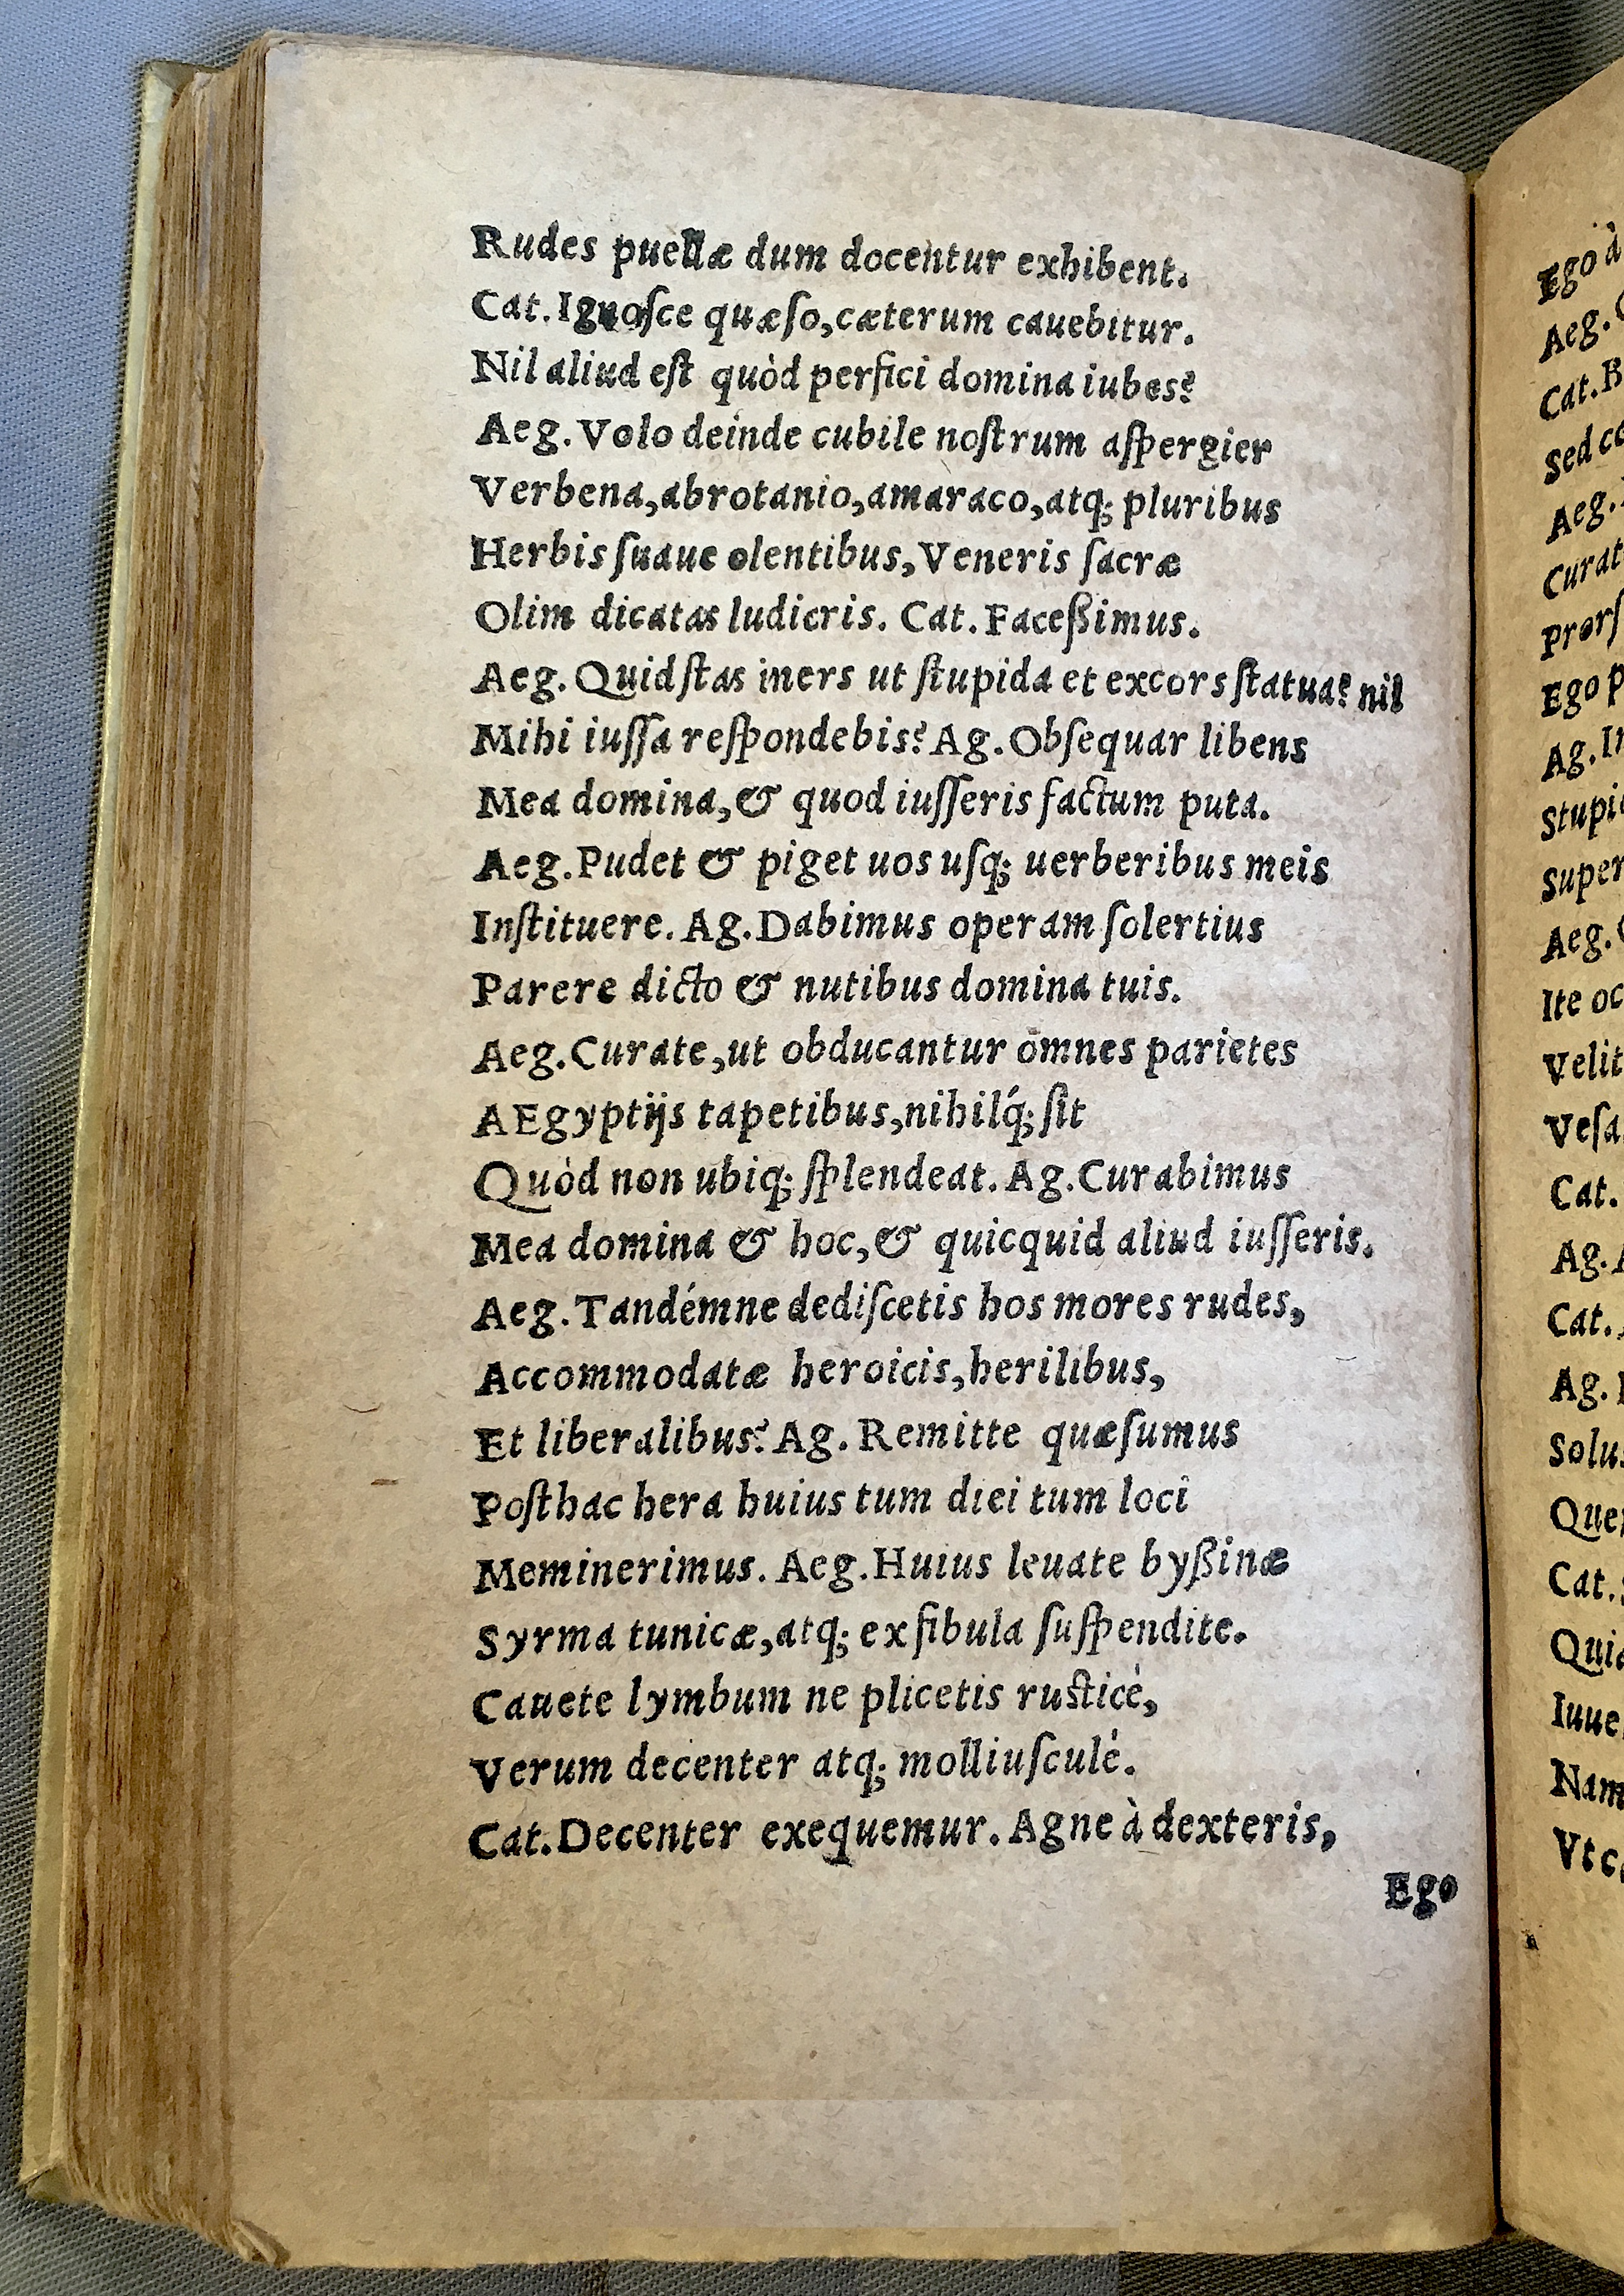 Rudes puellæ dum docentur exhibent.
Cat. Ignoſce quæſo, cæterum cauebitur.
Nil aliud eſt quòd perfici domina iubes?
Aeg. Volo deinde cubile noſtrum aſpergier
Verbena, abrotanio, amaraco, atq; pluribus
Herbis ſuaue olentibus, Veneris ſacræ
Olim dicatas ludicris. Cat. Faceßimus.
Aeg. Quid ſtas iners ut ſtupida et excors ſtatua? nil
Mihi iuſſa reſpondebis? Ag. Obſequar libens
Mea domina, & quod iuſſeris factum puta.
Aeg. Pudet & piget uos uſq; uerberibus meis
Inſtituere. Ag. Dabimus operam ſolertius
Parere dicto & nutibus domina tuis.
Aeg. Curate, ut obducantur omnes parietes
AEgyptijs tapetibus, nihilq́; ſit
Quòd non ubiq; ſplendeat. Ag. Curabimus
Mea domina & hoc, & quicquid aliud iuſſeris.
Aeg. Tandémne dediſcetis hos mores rudes,
Accommodatæ heroicis, herilibus,
Et liberalibus? Ag. Remitte quæſumus
Poſthac hera huius tum diei tum loci
Meminerimus. Aeg. Huius leuate byßinæ
Syrma tunicæ, atq; ex fibula ſuſpendite.
Cauete lymbum ne plicetis ruſticè,
Verum decenter atq; molliuſculè.
Cat. Decenter exequemur. Agne à dexteris,
Ego
Ego à
Aeg.
Cat.
Sed
Aeg.
Curat
Prorſ
Ego
Ag.
Stupi
Super
Aeg.
Ite
Velit
Veſa
Cat.
Ag.
Cat.
Ag.
Solus
Quem
Cat.
Quid
Iuue
Nam
Vt